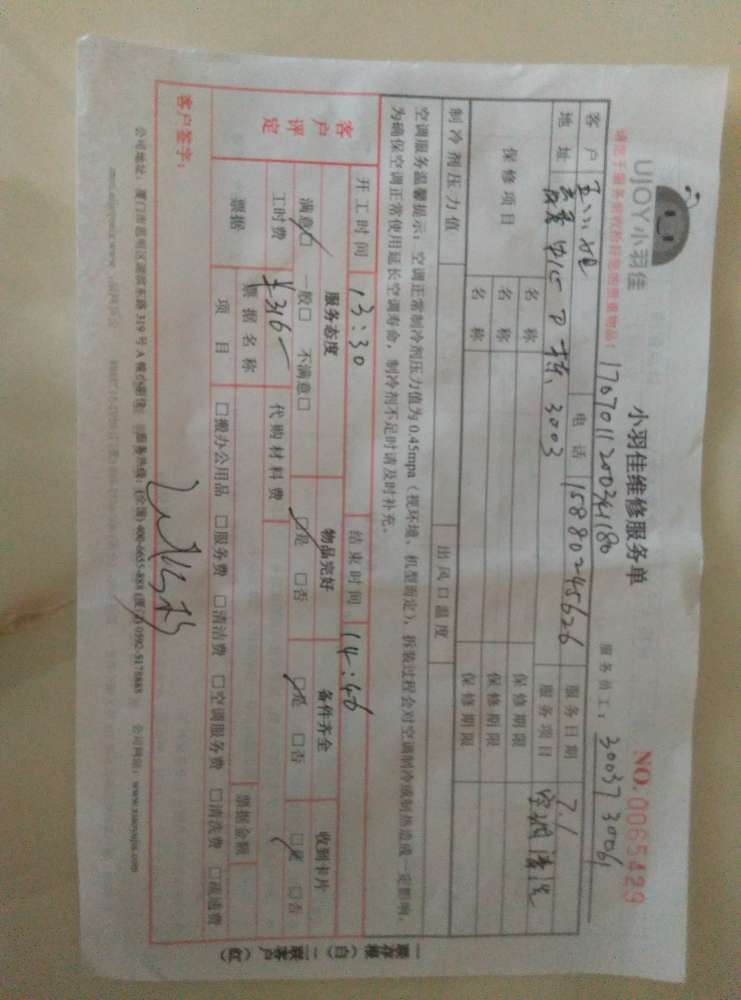 UJOY小羽佳
小羽佳维修服务单
NO.0065429
1707011200341180
服务员工：30037 30061
客户 电话 15880245626 服务日期 7.1
地址 中心 D栋 3003 服务项目 空调清洗
保修项目 名称 保修期限
名称 保修期限
名称 保修期限
制冷剂压力值 出风口温度
空调服务温馨提示：空调正常制冷剂压力值为0.45mpa（视环境、机型而定），拆装过程会对空调制冷或制热造成一定影响。
为确保空调正常使用延长空调寿命，制冷剂不足时请及时补充。
开工时间 13:30 结束时间 14:46
客户评定 服务态度 物品完好 备件齐全 收到卡片
满意□ 一般□ 不满意□ □是 □否 □是 □否 □是 □否
工时费 ¥316- 代购材料费
票据 票据名称 票据金额
项目 □搬办公用品 □服务费 □清洁费 □空调服务费 □清洗费 □疏通费
客户签字：
公司地址：厦门市思明区湖滨东路319号A 服务热线：(全国) 400-6655-888 (厦门) 0592-5178888 公司网站：www.xiaoyujia.com
一联存根（白） 二联客户（红）